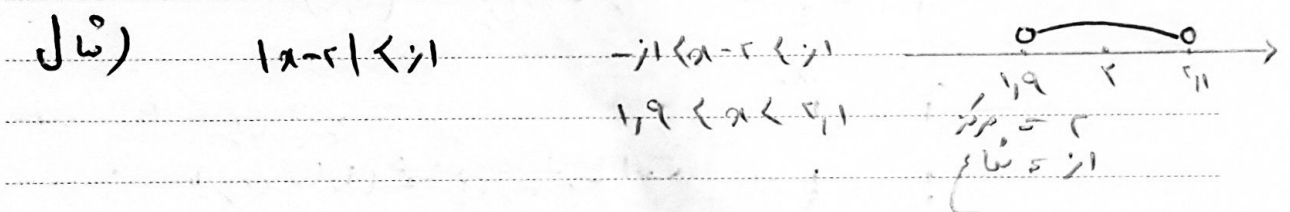 مثال) |x-۲| < ۰/۱    -۰/۱ < x-۲ < ۰/۱
۱/۹ < x < ۲/۱    ۱/۹ ۲ ۲/۱
۲ = مرکز
۰/۱ = شعاع